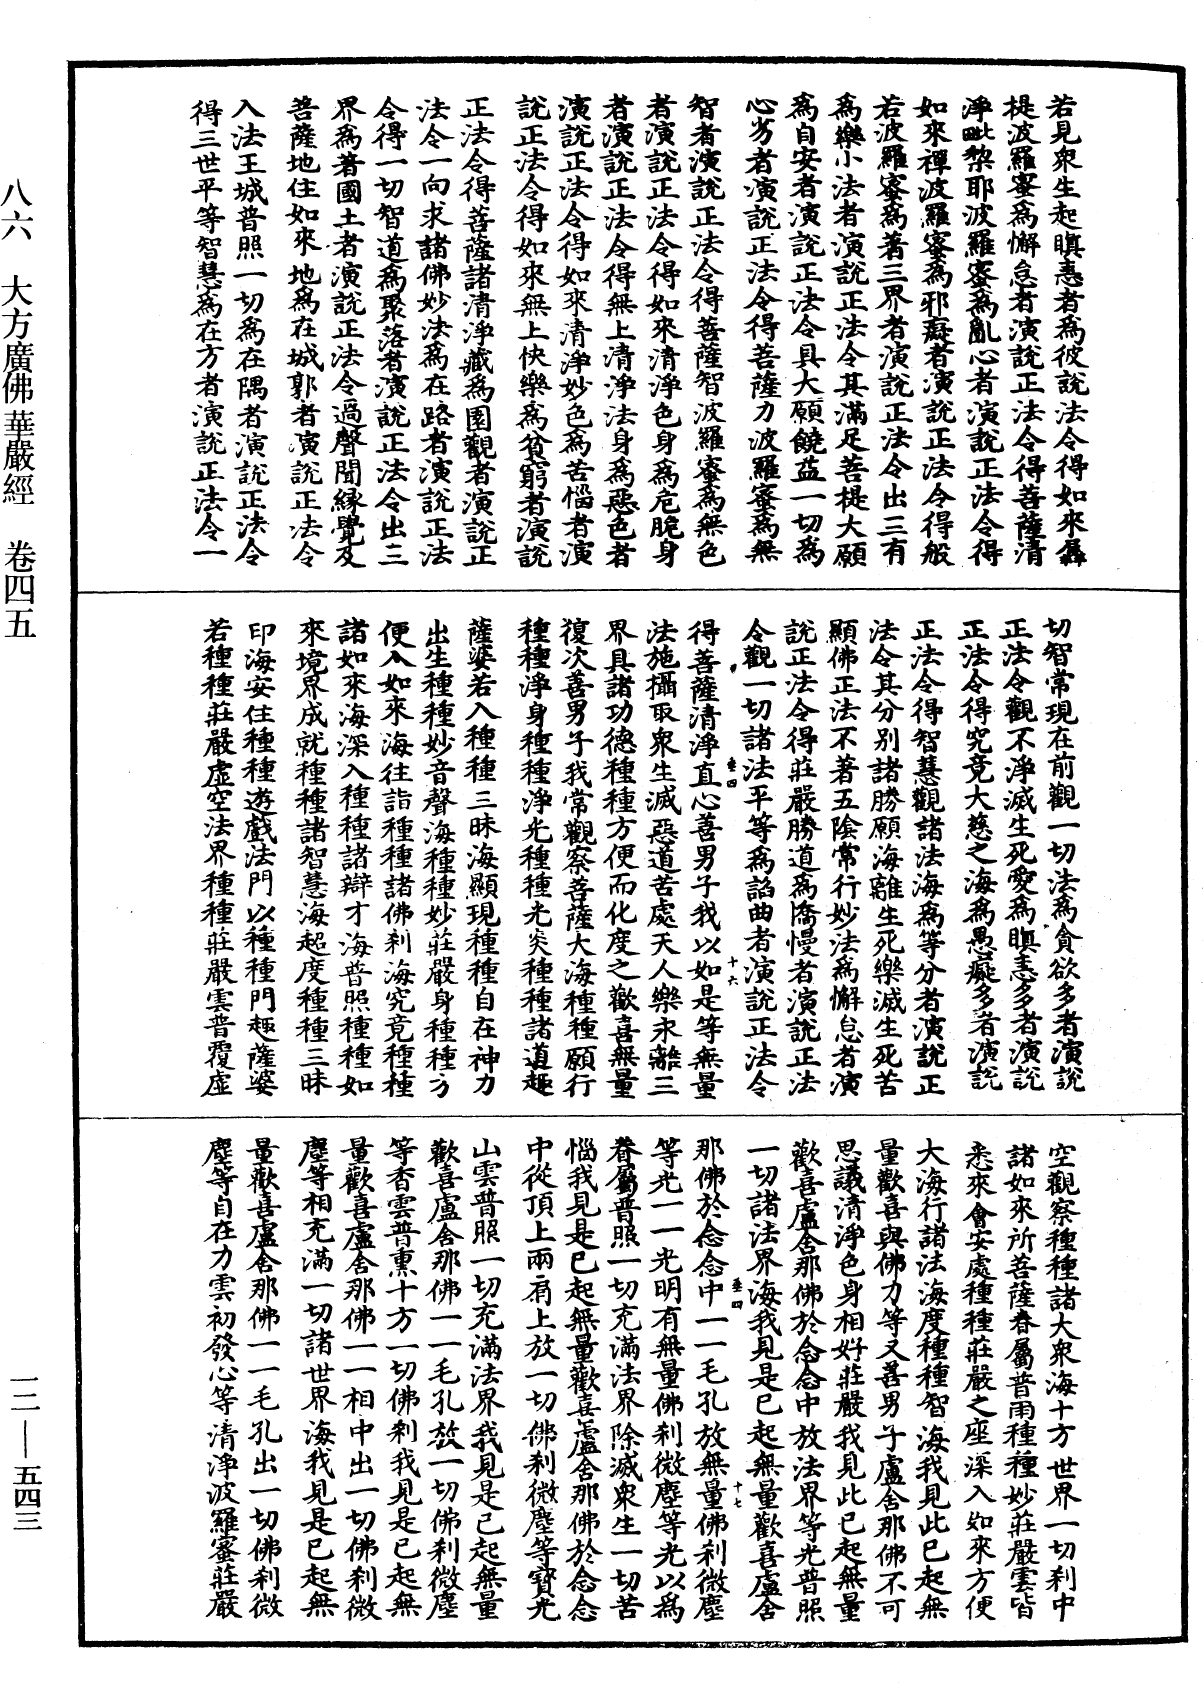 若見衆生起瞋恚者為彼說法令得如來羼
提波羅蜜為懈怠者演說正法令得菩薩清
淨毗梨耶波羅蜜為亂心者演說正法令得
如來禪波羅蜜為邪癡者演說正法令得般
若波羅蜜為著三界者演說正法令出三有
為樂小法者演說正法令其滿足菩提大願
為自安者演說正法令具大願饒益一切為
心劣者演說正法令得菩薩力波羅蜜為無
智者演說正法令得菩薩智波羅蜜為無色
者演說正法令得如來清淨色身為危脆身
者演說正法令得無上清淨法身為惡色者
演說正法令得如來清淨妙色為苦惱者演
說正法令得如來無上快樂為貧窮者演說
正法令得菩薩諸清淨藏為園觀者演說正
法令一向求諸佛妙法為在路者演說正法
令得一切智道為聚落者演說正法令出三
界為著國土者演說正法令過聲聞緣覺及
菩薩地住如來地為在城郭者演說正法令
入法王城普照一切為在隅者演說正法令
得三世平等智慧為在方者演說正法令一
切智常現在前觀一切法為貪欲多者演說
正法令觀不淨滅生死愛為瞋恚多者演說
正法令得究竟大慈之海為愚癡多者演說
正法令得智慧觀諸法海為等分者演說正
法令其分別諸勝願海離生死樂滅生死苦
顯佛正法不著五陰常行妙法為懈怠者演
說正法令得莊嚴勝道為憍慢者演說正法
令觀一切諸法平等為諂曲者演說正法令
得菩薩清淨直心善男子我以如是等無量
法施攝取衆生滅惡道苦處天人樂永離三
界具諸功德種種方便而化度之歡喜無量
復次善男子我常觀察菩薩大海種種願行
種種淨身種種淨光種種光炎種種諸道趣
薩婆若入種種三昧海顯現種種自在神力
出生種種妙音聲海種種妙莊嚴身種種方
便入如來海往詣種種諸佛剎海究竟種種
諸如來海深入種種諸辯才海普照種種如
來境界成就種種諸智慧海超度種種三昧
印海安住種種遊戲法門以種種門趣薩婆
若種種莊嚴虛空法界種種莊嚴雲普覆虛
空觀察種種諸大衆海十方世界一切剎中
諸如來所菩薩眷屬普雨種種妙莊嚴雲皆
悉來會安處種種莊嚴之座深入如來方便
大海行諸法海度種種智海我見此已起無
量歡喜與佛力等又善男子盧舍那佛不可
思議清淨色身相好莊嚴我見此已起無量
歡喜盧舍那佛於念念中放法界等光普照
一切諸法界海我見是已起無量歡喜盧舍
那佛於念念中一一毛孔放無量佛剎微塵
等光一一光明有無量佛剎微塵等光以為
眷屬普照一切充滿法界除滅衆生一切苦
惱我見是已起無量歡喜盧舍那佛於念念
中從頂上兩肩上放一切佛剎微塵等寶光
山雲普照一切充滿法界我見是已起無量
歡喜盧舍那佛一一毛孔放一切佛剎微塵
等香雲普熏十方一切佛剎我見是已起無
量歡喜盧舍那佛一一相中出一切佛剎微
塵等相充滿一切諸世界海我見是已起無
量歡喜盧舍那佛一一毛孔出一切佛剎微
塵等自在力雲初發心等清淨波羅蜜莊嚴
垂四
十六
垂四
十七
八六　大方廣佛華嚴經　卷四五
一二—五四三